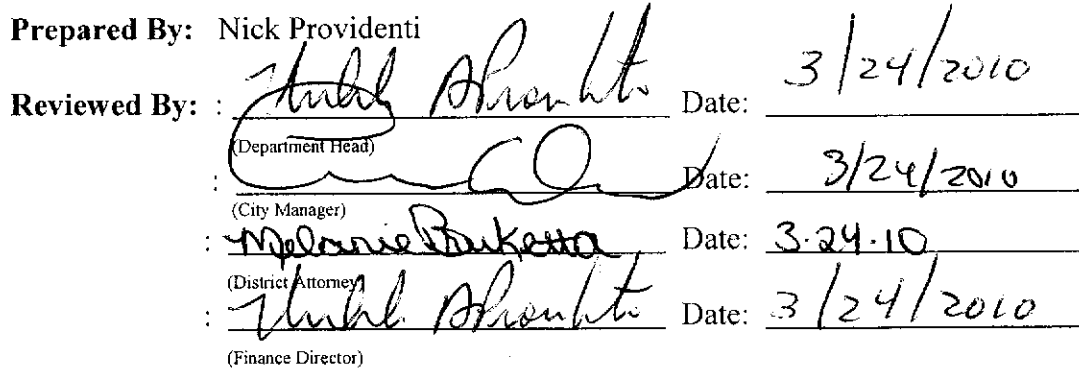 Prepared By: Nick Providenti
Reviewed By: : Date: 3/24/2010
(Department Head)
: Date: 3/24/2010
(City Manager)
: Melanie Date: 3.24.10
(District Attorney)
: Date: 3/24/2010
(Finance Director)